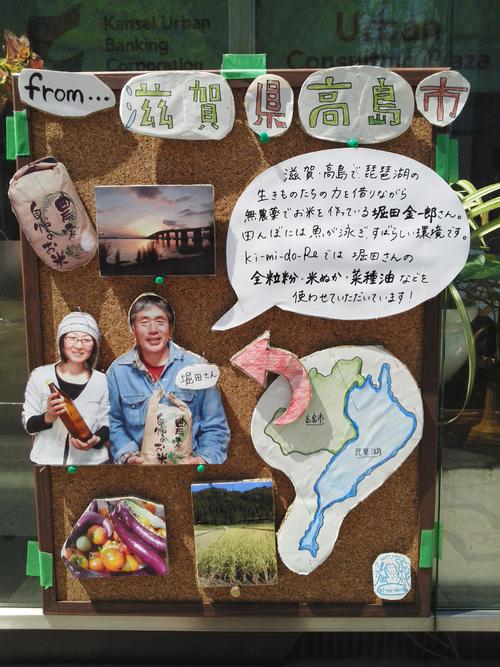 Kansai Urban
Banking
Corporation
Urban
Consulting Plaza
from...
滋賀県高島市
滋賀・高島で琵琶湖の
生きものたちの力を借りながら
無農薬でお米を作っている堀田金一郎さん。
田んぼには魚が泳ぎ、すばらしい環境です。
ki-mi-do-Reでは堀田さんの
全粒粉・米ぬか・菜種油などを
使わせていただいています!
農薬
自慢のお米
堀田さん
自慢のお米
高島市
琵琶湖
ki-mi-do-Re